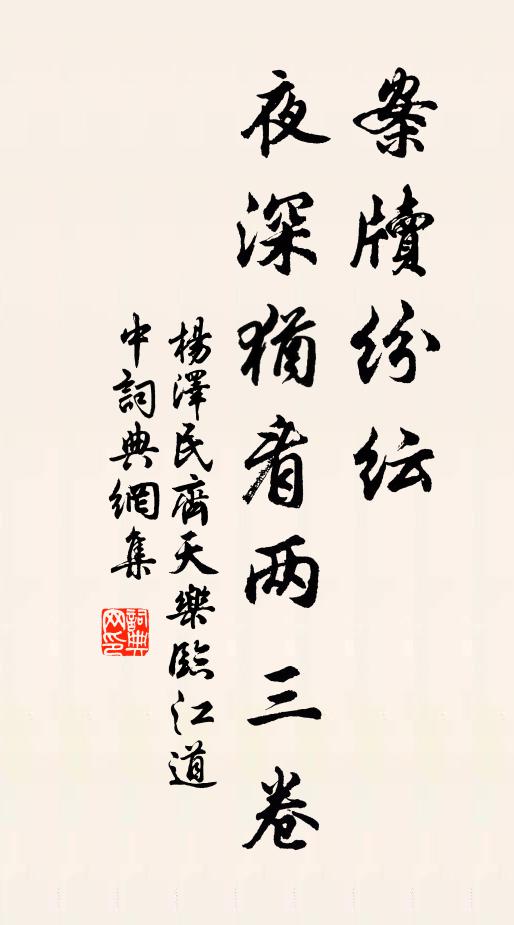 案牘紛紜
夜深猶看两三卷
楊澤民齊天樂臨江道
中詞典網集
詞典网印